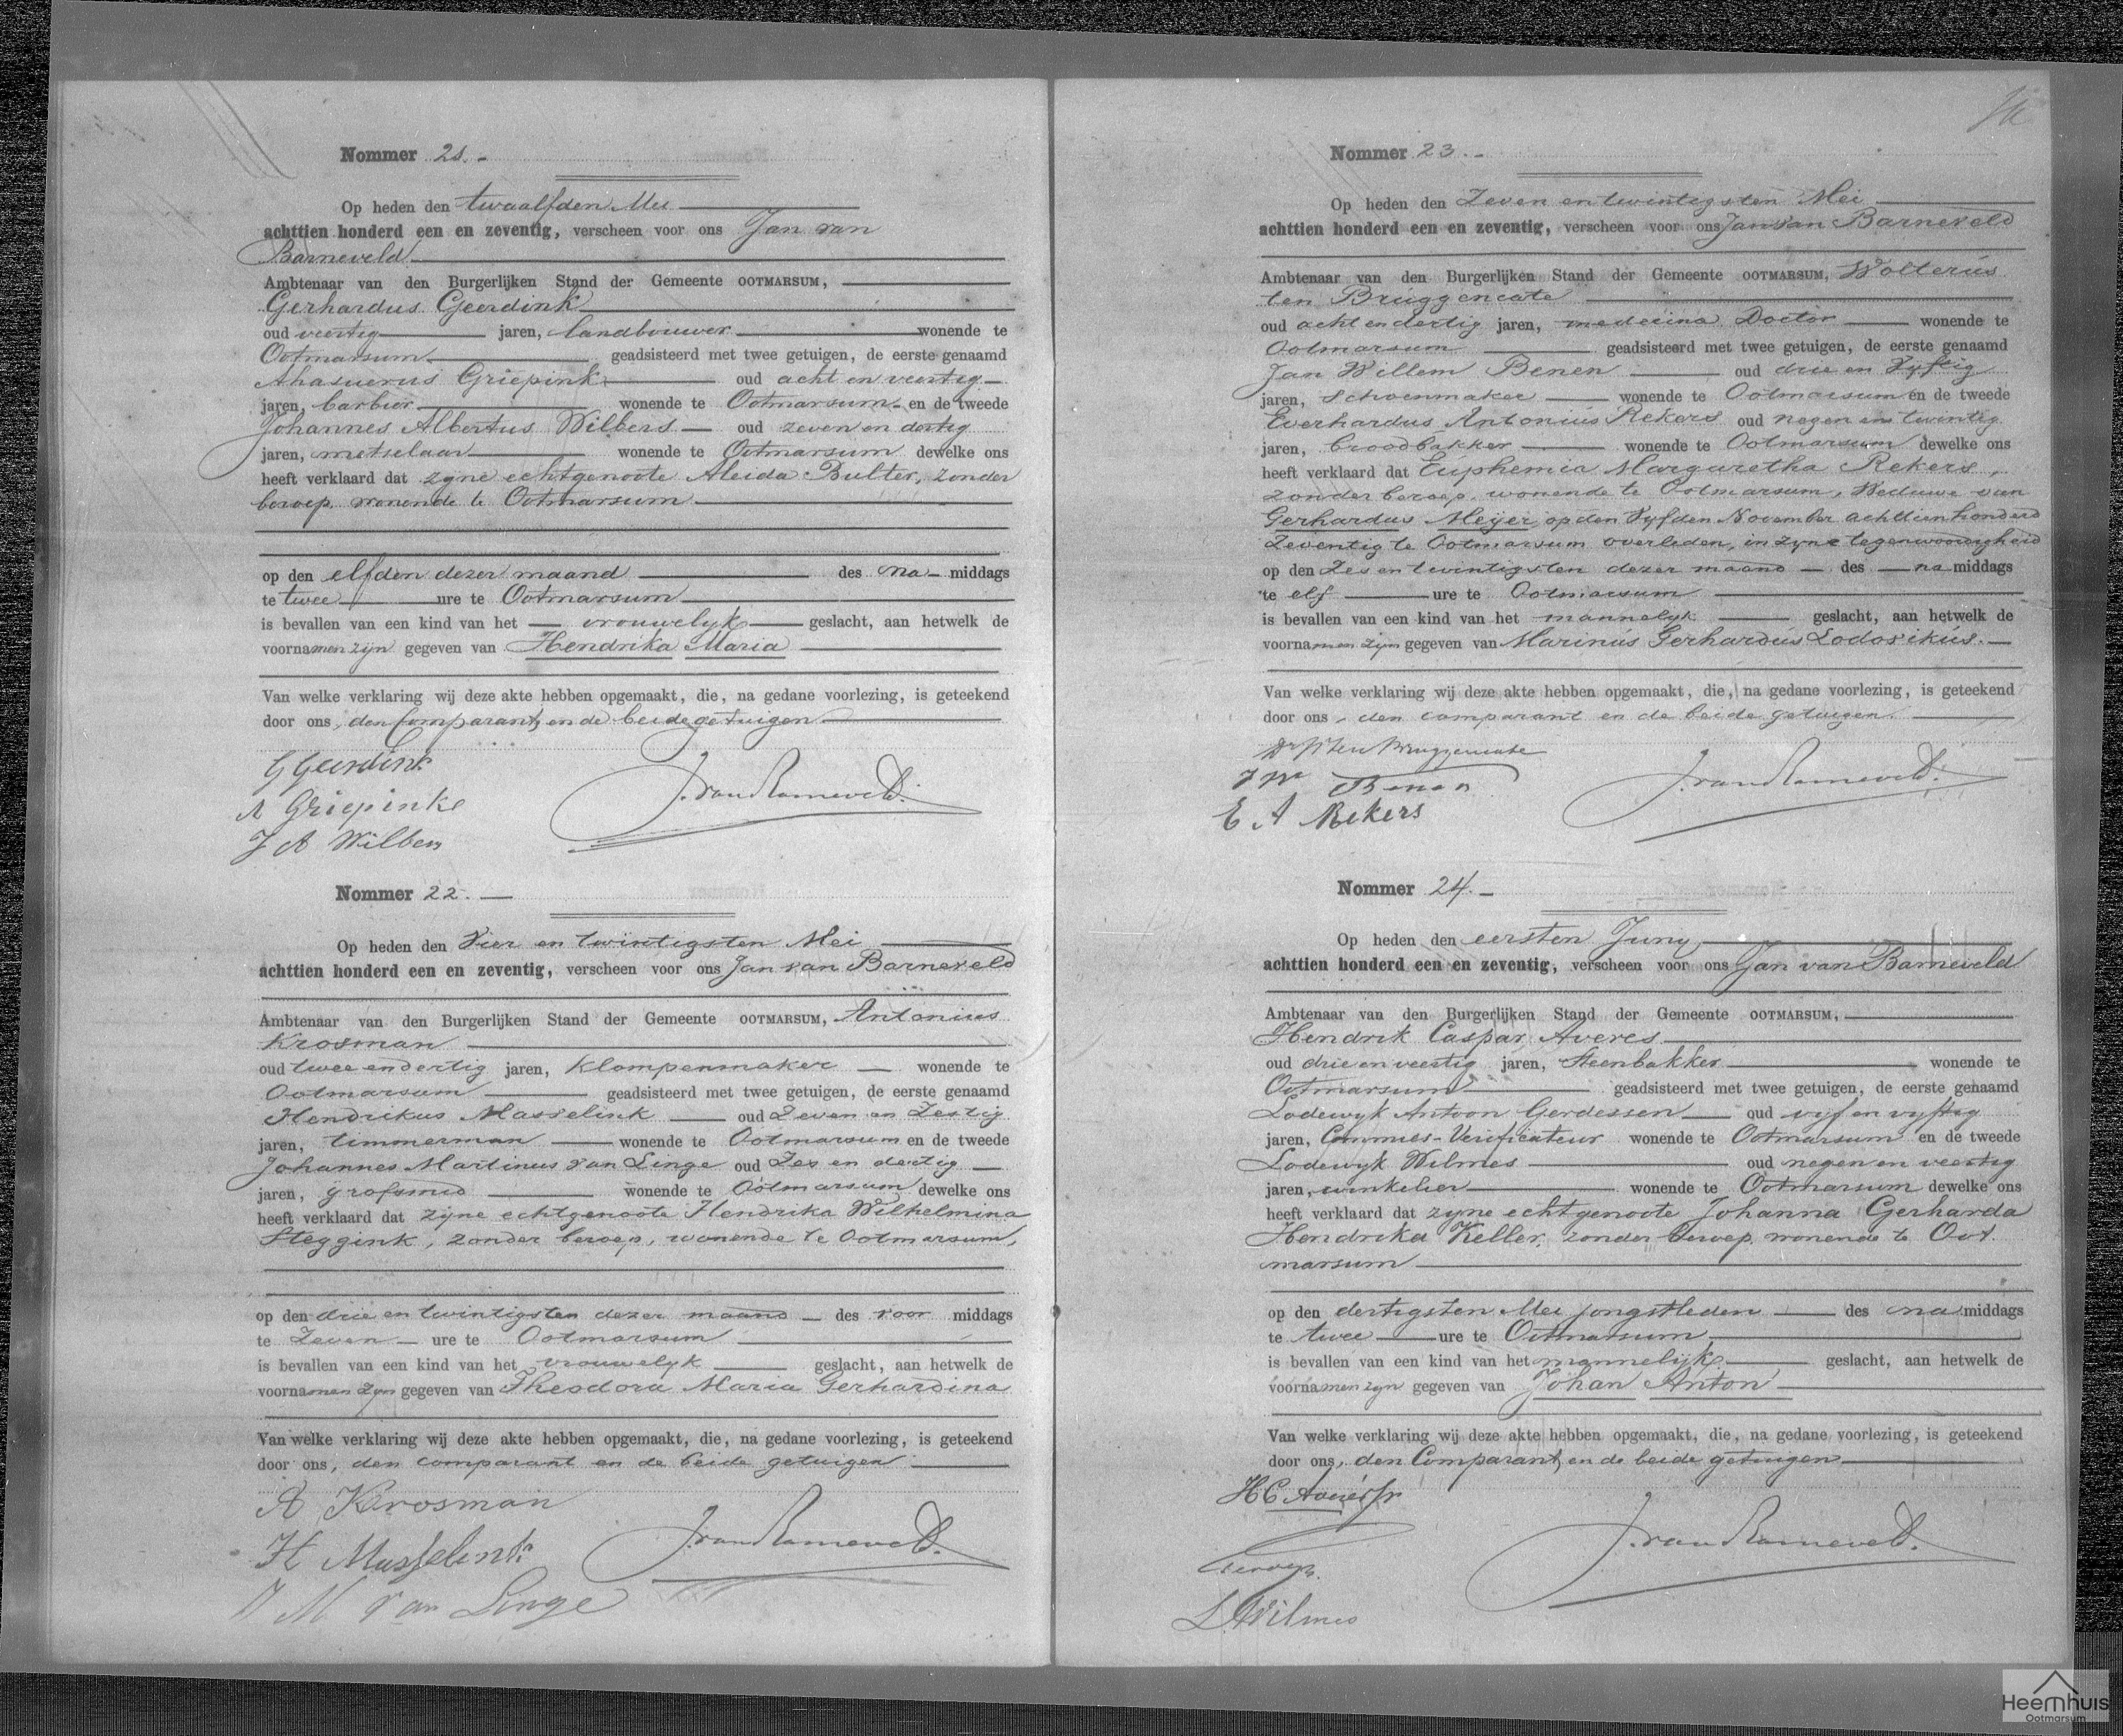 Nommer 21.
Op heden den twaalfden Mei
achttien honderd een en zeventig, verscheen voor ons Jan van
Barneveld
Ambtenaar van den Burgerlijken Stand der Gemeente OOTMARSUM,
Gerhardus Geerdink
oud veertig jaren, landbouwer wonende te
Ootmarsum geadsisteerd met twee getuigen, de eerste genaamd
Ahasuerus Griepink oud acht en veertig
jaren, barbier wonende te Ootmarsum en de tweede
Johannes Albertus Wilbers oud zeven en dertig
jaren, metselaar wonende te Ootmarsum dewelke ons
heeft verklaard dat zyne echtgenoote Aleida Bulter, zonder
beroep, wonende te Ootmarsum
op den elfden dezer maand des na middags
te twee ure te Ootmarsum
is bevallen van een kind van het vrouwelyk geslacht, aan hetwelk de
voornamen zijn gegeven van Hendrika Maria
Van welke verklaring wij deze akte hebben opgemaakt, die, na gedane voorlezing, is geteekend
door ons, den Comparant, en de beide getuigen
G Geerdink
A Griepink
J. van Barneveld.
J A Wilbers
Nommer 22.
Op heden den Vier en twintigsten Mei
achttien honderd een en zeventig, verscheen voor ons Jan van Barneveld
Ambtenaar van den Burgerlijken Stand der Gemeente OOTMARSUM, Antonius
Krosman
oud twee en dertig jaren, Klompenmaker wonende te
Ootmarsum geadsisteerd met twee getuigen, de eerste genaamd
Hendrikus Masselink oud Zeven en Zestig
jaren, timmerman wonende te Ootmarsum en de tweede
Johannes Martinus van Linge oud Zes en dertig
jaren, grofsmid wonende te Ootmarsum dewelke ons
heeft verklaard dat zijne echtgenoote Hendrika Wilhelmina
Steggink, zonder beroep, wonende te Ootmarsum,
op den drie en twintigsten dezer maand des voor middags
te Zeven ure te Ootmarsum
is bevallen van een kind van het vrouwelyk geslacht, aan hetwelk de
voornamen zyn gegeven van Theodora Maria Gerhardina
Van welke verklaring wij deze akte hebben opgemaakt, die, na gedane voorlezing, is geteekend
door ons, den comparant en de beide getuigen
A Krosman
H Masselink
J. van Barneveld.
J M van Linge
Nommer 23.
Op heden den Zeven en twintigsten Mei
achttien honderd een en zeventig, verscheen voor ons Jan van Barneveld
Ambtenaar van den Burgerlijken Stand der Gemeente OOTMARSUM, Wolterus
ten Bruggencate
oud acht en dertig jaren, medecina Doctor wonende te
Ootmarsum geadsisteerd met twee getuigen, de eerste genaamd
Jan Willem Benen oud drie en Vyftig
jaren, Schoenmaker wonende te Ootmarsum en de tweede
Everhardus Antonius Rekers oud negen en twintig
jaren, broodbakker wonende te Ootmarsum dewelke ons
heeft verklaard dat Euphemia Margaretha Rekers,
zonder beroep, wonende te Ootmarsum, Weduwe van
Gerhardus Meijer, op den Vyfden November achttien honderd
Zeventig te Ootmarsum overleden, in zyne tegenwoordigheid
op den Zes en twintigsten dezer maand des na middags
te elf ure te Ootmarsum
is bevallen van een kind van het mannelyk geslacht, aan hetwelk de
voornamen zijn gegeven van Marinus Gerhardus Lodovikus.
Van welke verklaring wij deze akte hebben opgemaakt, die, na gedane voorlezing, is geteekend
door ons, den comparant en de beide getuigen.
ten Bruggencate
J W Benen
J. van Barneveld.
E A Rekers
Nommer 24.
Op heden den eersten Juny
achttien honderd een en zeventig, verscheen voor ons Jan van Barneveld
Ambtenaar van den Burgerlijken Stand der Gemeente OOTMARSUM,
Hendrik Caspar Averes
oud drie en veertig jaren, Steenbakker wonende te
Ootmarsum geadsisteerd met twee getuigen, de eerste genaamd
Lodewyk Antoon Gerdessen oud vijf en vyftig
jaren, Commies-Verificateur wonende te Ootmarsum en de tweede
Lodewyk Wilmes oud negen en veertig
jaren, winkelier wonende te Ootmarsum dewelke ons
heeft verklaard dat zyne echtgenoote Johanna Gerharda
Hendrika Keller, zonder beroep, wonende te Oot-
marsum
op den dertigsten Mei jongstleden des na middags
te twee ure te Ootmarsum
is bevallen van een kind van het mannelijk geslacht, aan hetwelk de
voornamen zyn gegeven van Johan Anton
Van welke verklaring wij deze akte hebben opgemaakt, die, na gedane voorlezing, is geteekend
door ons, den Comparant, en de beide getuigen
H C
J. van Barneveld.
L Wilmes
Heemhuis
Ootmarsum